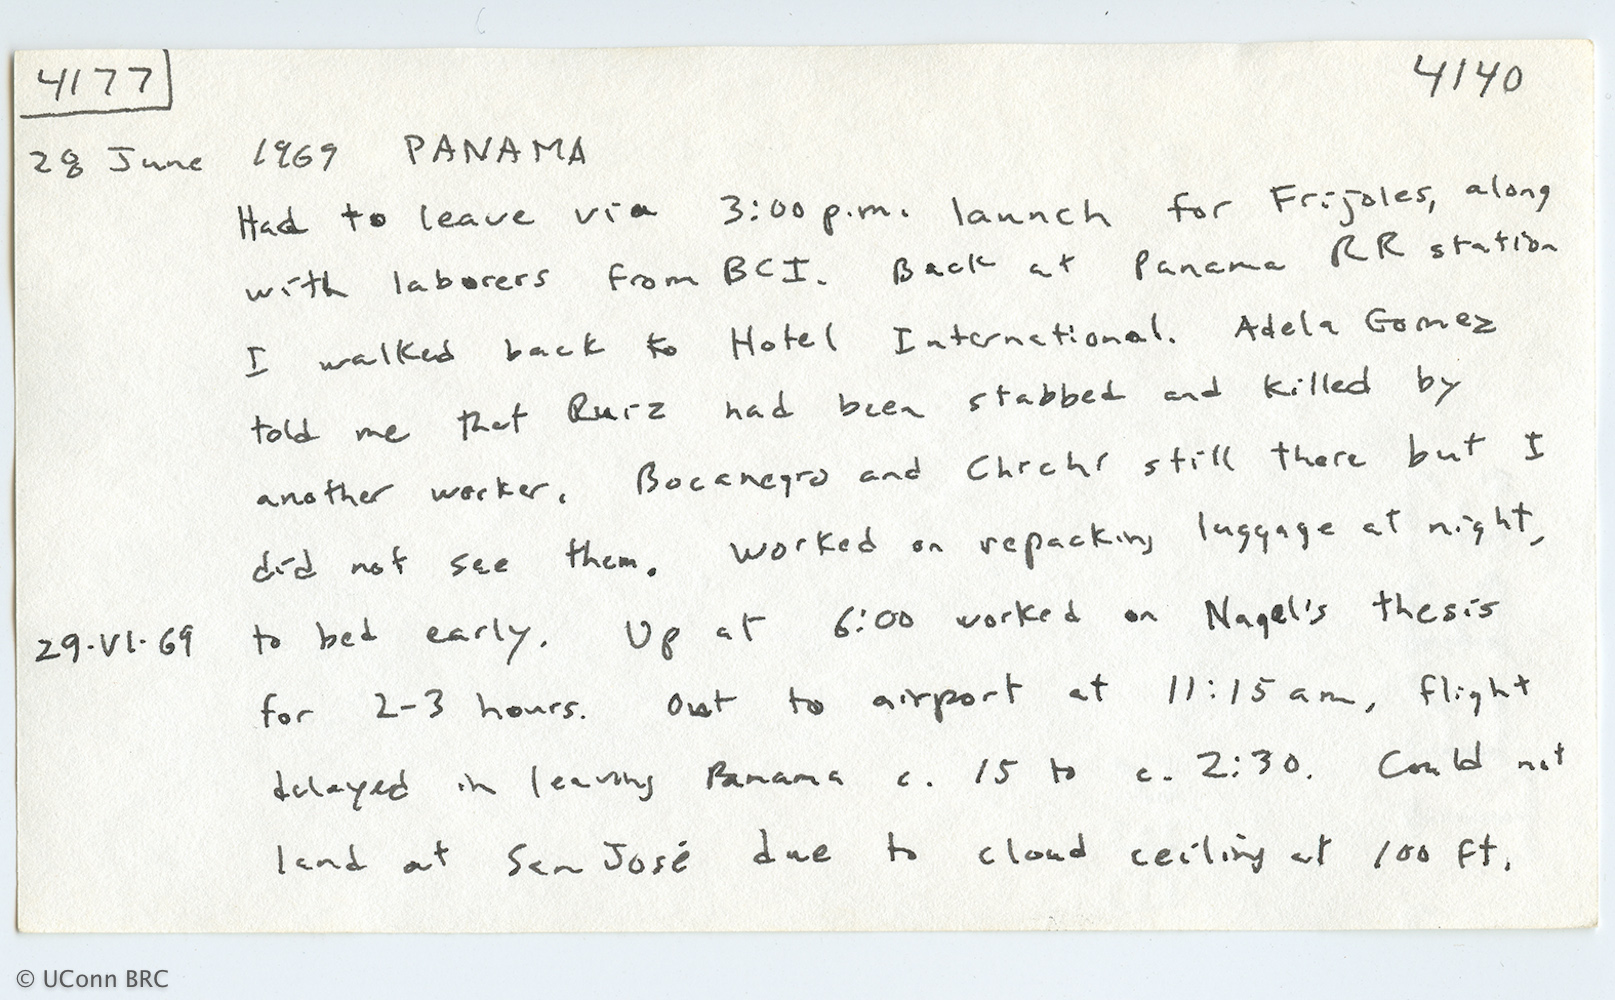 4177 4140
28 June 1969 PANAMA
Had to leave via 3:00 p.m. launch for Frijoles, along
with laborers from BCI. Back at Panama RR station
I walked back to Hotel International. Adela Gomez
told me that Ruiz had been stabbed and killed by
another worker. Bocanegro and Chichi still there but I
did not see them. Worked on repacking luggage at night,
29.VI.69 to bed early. Up at 6:00 worked on Nagel's thesis
for 2-3 hours. Out to airport at 11:15 am, flight
delayed in leaving Panama c. 15 to c. 2:30. Could not
land at San José due to cloud ceiling at 100 ft.
© UConn BRC